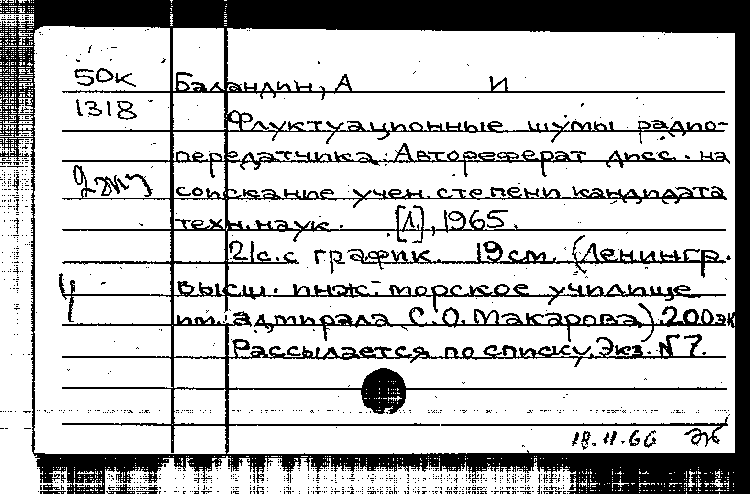 50к Баландин, А И
1318
Флуктуационные шумы радио-
передатчика. Автореферат дисс. на
2 экз
соискание учен. степени кандидата
техн. наук. [Л.], 1965.
21с. с график. 19 см. (Ленингр.
высш. инж. морское училище
им. адмирала С. О. Макарова). 200 эк
Рассылается по списку. Экз. № 7.
18.11.66